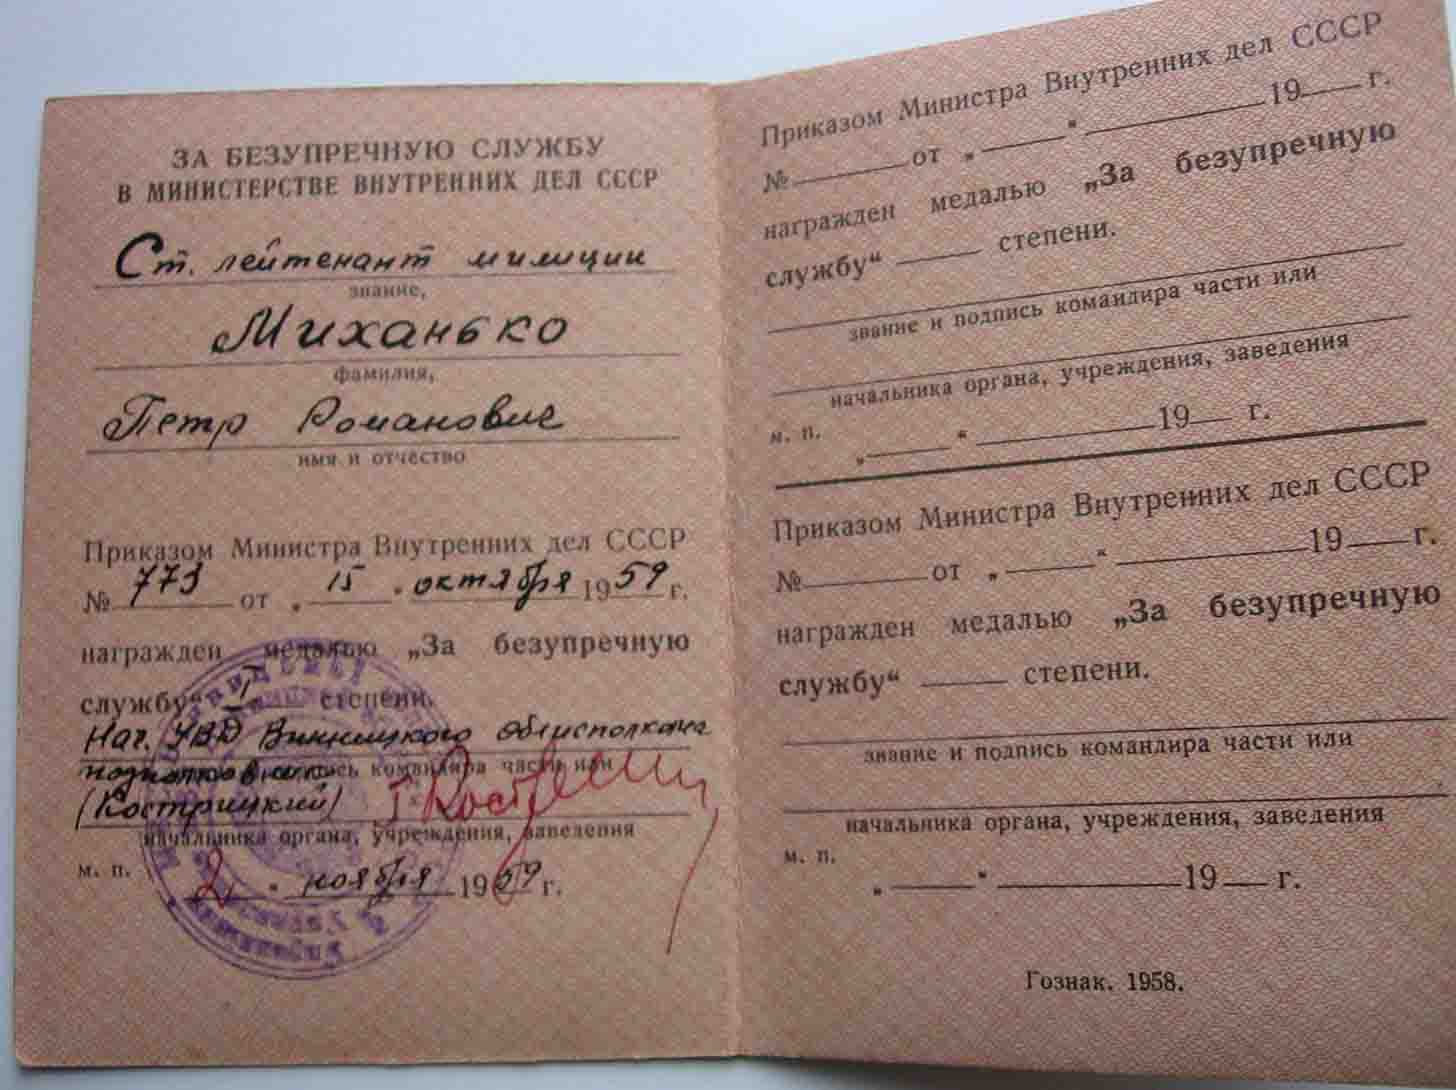 ЗА БЕЗУПРЕЧНУЮ СЛУЖБУ
В МИНИСТЕРСТВЕ ВНУТРЕННИХ ДЕЛ СССР
Ст. лейтенант милиции
звание,
Миханько
фамилия,
Петр Романович
имя и отчество
Приказом Министра Внутренних дел СССР
№ 773 от „ 15 " октября 1959 г.
награжден медалью „За безупречную
службу" I степени.
Нач. УВД Винницкого облисполкома
подполковник подпись командира части или
(Кострицкий)
начальника органа, учреждения, заведения
м. п. 2 " ноября 1959 г.
Приказом Министра Внутренних дел СССР
№ от „ " 19 г.
награжден медалью „За безупречную
службу“ степени.
звание и подпись командира части или
начальника органа, учреждения, заведения
м. п. „ “ 19 г.
Приказом Министра Внутренних дел СССР
№ от „ “ 19 г.
награжден медалью „За безупречную
службу“ степени.
звание и подпись командира части или
начальника органа, учреждения, заведения
м. п. „ “ 19 г.
Гознак. 1958.